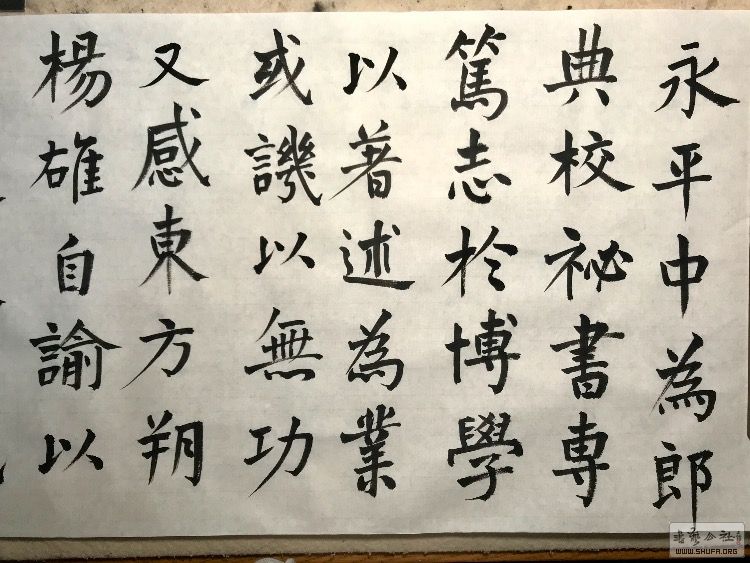 永平中為郎
典校祕書專
篤志於博學
以著述為業
或譏以無功
又感東方朔
楊雄自諭以
WWW.SHUFA.ORG